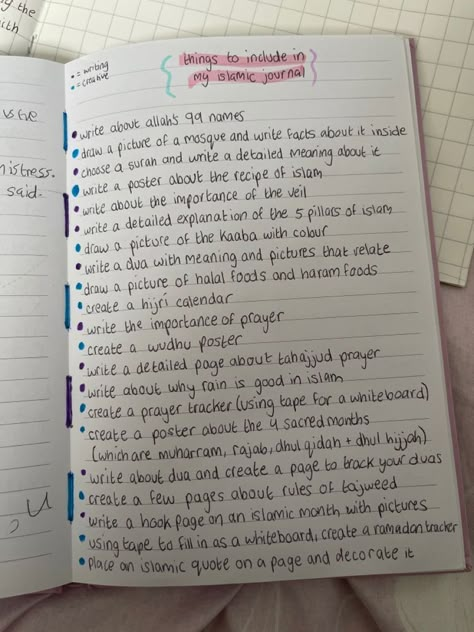 ng the
with
• = writing
• = creative
things to include in
my islamic journal
• write about allah's 99 names
• draw a picture of a mosque and write facts about it inside
• choose a surah and write a detailed meaning about it
• write a poster about the recipe of islam
• write about the importance of the veil
• write a detailed explanation of the 5 pillars of islam
• draw a picture of the kaaba with colour
• write a dua with meaning and pictures that relate
• draw a picture of halal foods and haram foods
• create a hijri calendar
• write the importance of prayer
• create a wudhu poster
• write a detailed page about tahajjud prayer
• write about why rain is good in islam
• create a prayer tracker (using tape for a whiteboard)
• create a poster about the 4 sacred months
(which are muharram, rajab, dhul qidah + dhul hijjah)
• write about dua and create a page to track your duas
• create a few pages about rules of tajweed
• write a hook page on an islamic month with pictures
• using tape to fill in as a whiteboard, create a ramadan tracker
• place an islamic quote on a page and decorate it
mistress.
said.